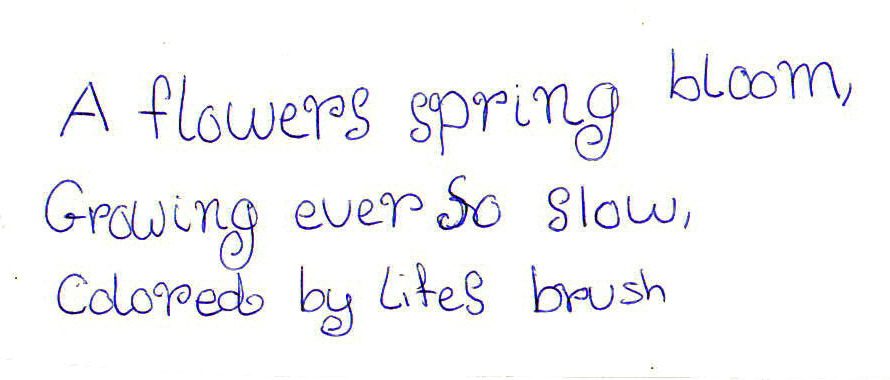 A flowers spring bloom,
Growing ever So slow,
Colored by Lifes brush